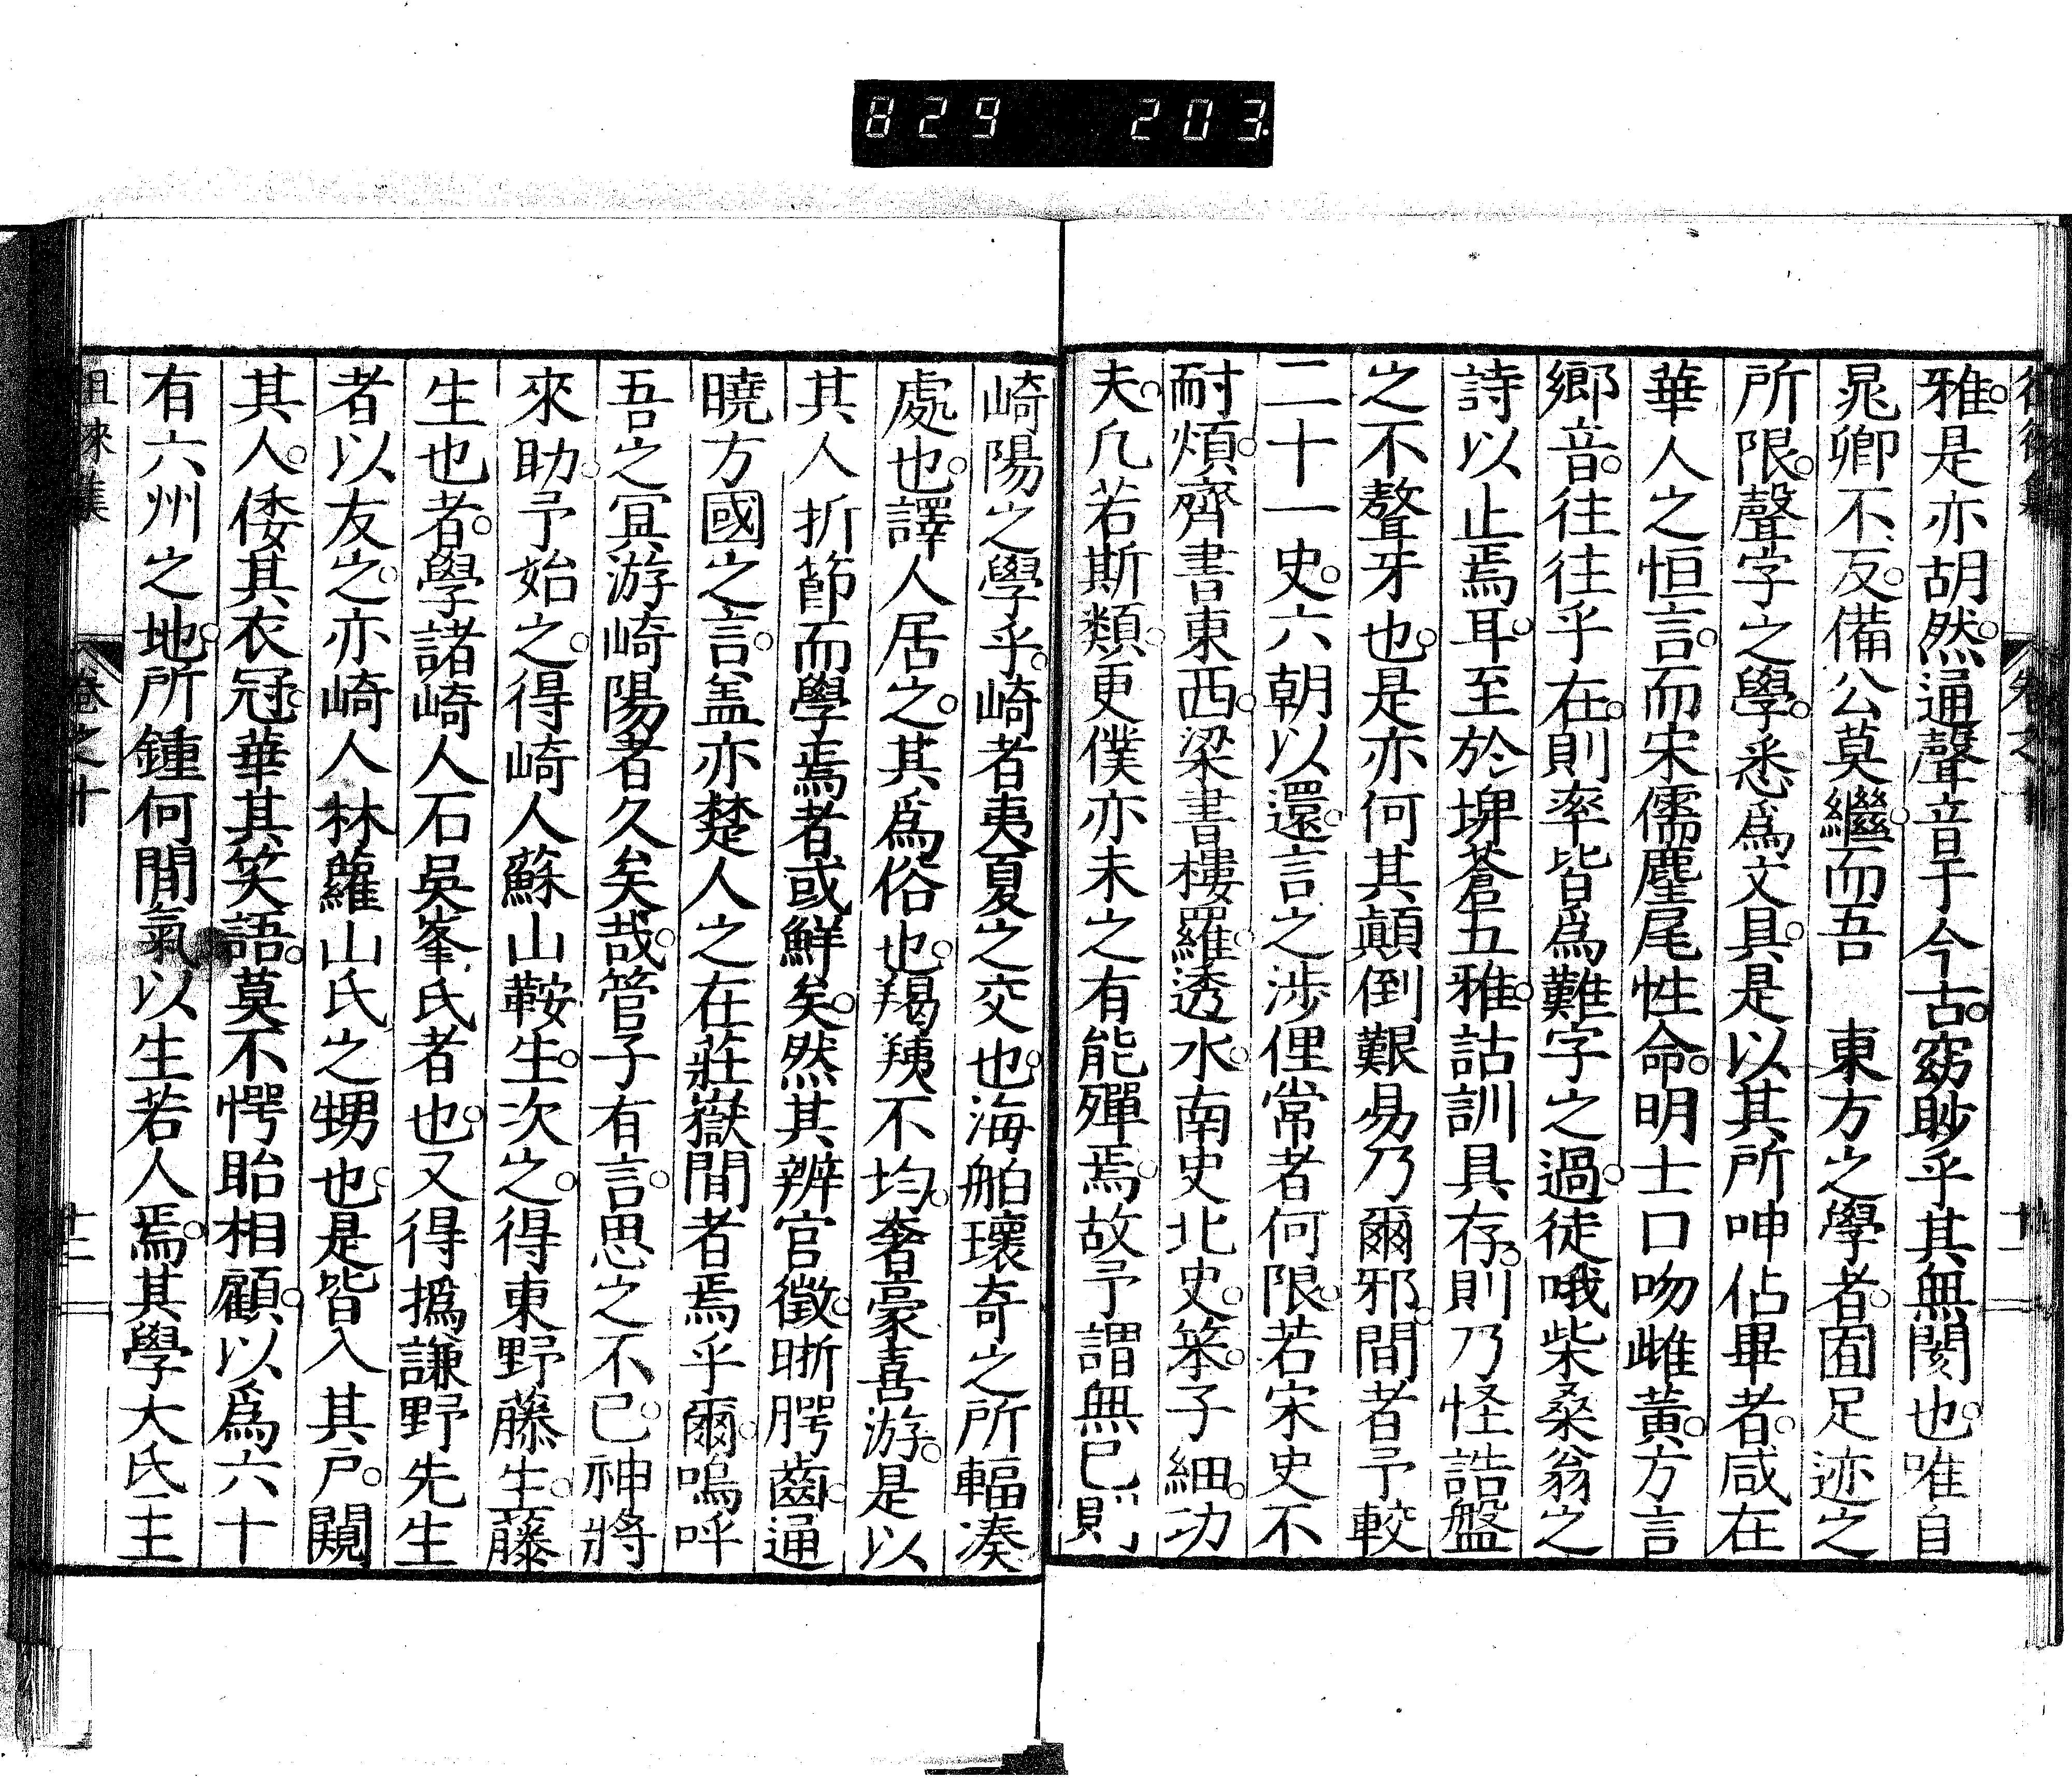 829 203.
雅。是亦胡然。通聲音于今古。窈眇乎其無閡也。唯自
晁卿不反。備公莫繼。而吾 東方之學者。囿足迹之
所限。聲字之學。悉爲文具。是以其所呻佔畢者。咸在
華人之恒言。而宋儒麈尾性命。明士口吻雌黃。方言
鄉音。往往乎在。則率皆爲難字之過。徒哦柴桑翁之
詩以止焉耳。至於埤蒼五雅。詁訓具存。則乃怪誥盤
之不聱牙也。是亦何其顛倒艱易乃爾邪。間者予較
二十一史。六朝以還。言之涉俚常者何限。若宋史不
耐煩。齊書東西。梁書樓羅。透水。南史北史。笨。子細。功
夫。凡若斯類。更僕亦未之有能殫焉。故予謂無已則
崎陽之學乎。崎者夷夏之交也。海舶瓌奇之所輻湊
處也。譯人居之。其爲俗也。羯羠不均。奢豪喜游。是以
其人折節而學焉者或鮮矣。然其辨官徵。晰腭齒。通
曉方國之言。盖亦楚人之在莊嶽間者焉乎爾。嗚呼
吾之冥游崎陽者久矣哉。管子有言。思之不已。神將
來助。予始之。得崎人蘇山鞍生。次之。得東野藤生。藤
生也者。學諸崎人石吳峯氏者也。又得撝謙野先生
者以友之。亦崎人林蘿山氏之甥也。是皆入其戶。闚
其人。倭其衣冠。華其笑語。莫不愕眙相顧。以爲六十
有六州之地。所鍾何間氣以生若人焉。其學大氐主
徂徠集 卷之十 十二